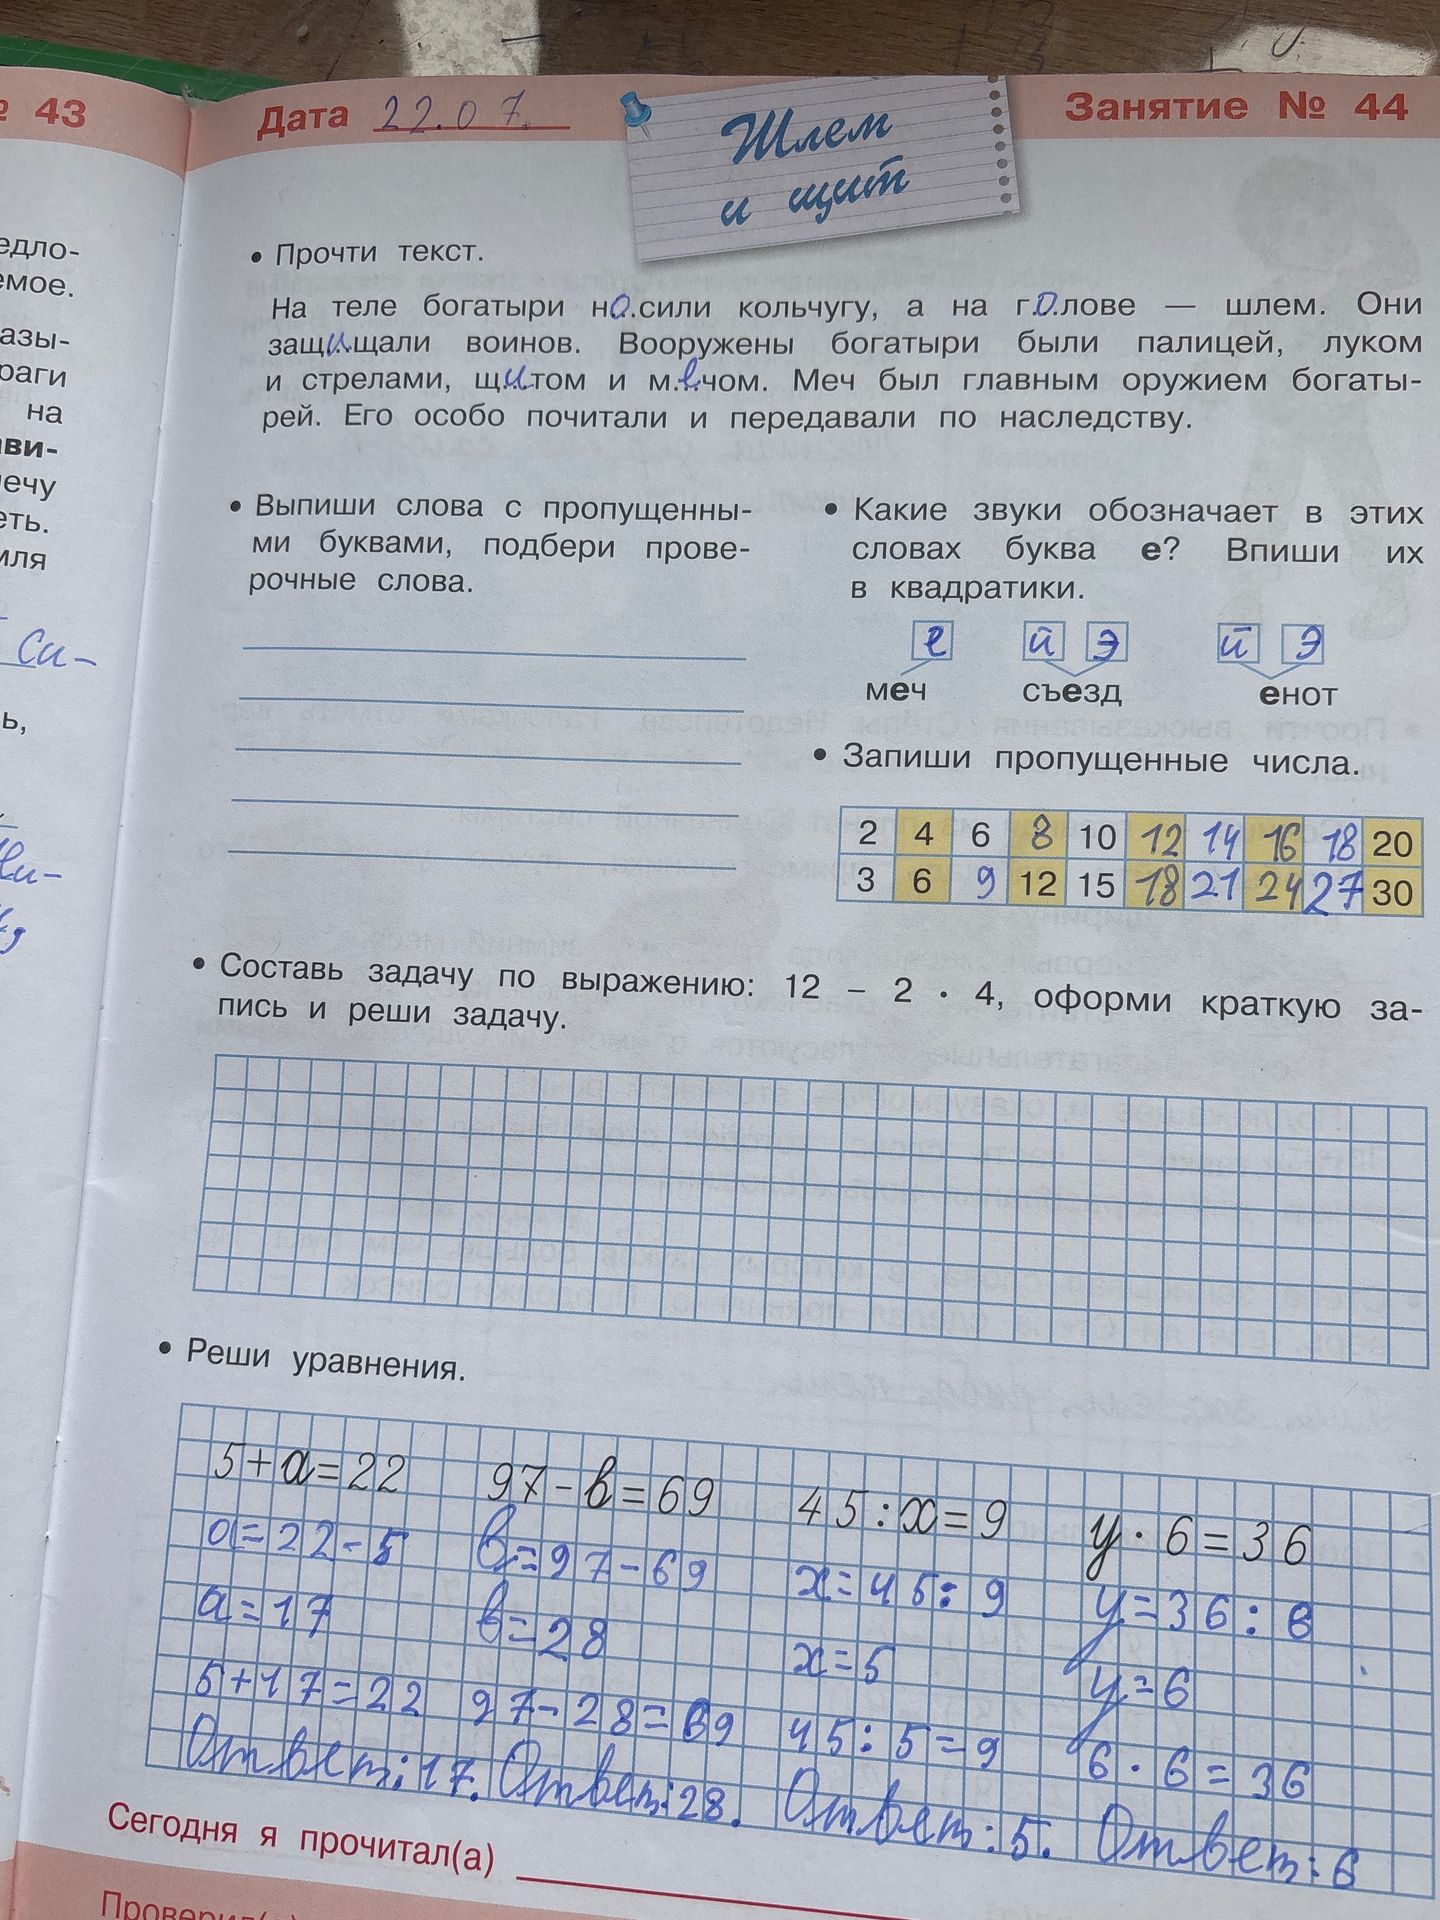 № 43
Дата 22.07.
Шлем
и щит
Занятие № 44
едло-
емое.
азы-
раги
на
ави-
лечу
еть.
мля
Си-
ь,
ли-
• Прочти текст.
На теле богатыри но.сили кольчугу, а на г.о.лове — шлем. Они
защ.и.щали воинов. Вооружены богатыри были палицей, луком
и стрелами, щ.и.том и м.е.чом. Меч был главным оружием богаты-
рей. Его особо почитали и передавали по наследству.
• Выпиши слова с пропущенны-
ми буквами, подбери прове-
рочные слова.
• Какие звуки обозначает в этих
словах буква е? Впиши их
в квадратики.
е й э й э
меч съезд енот
• Запиши пропущенные числа.
2 4 6 8 10 12 14 16 18 20
3 6 9 12 15 18 21 24 27 30
• Составь задачу по выражению: 12 – 2 · 4, оформи краткую за-
пись и реши задачу.
• Реши уравнения.
5+а=22 97-в=69 45:х=9 у·6=36
а=22-5 в=97-69 х=45:9 у=36:6
а=17 в=28 х=5 у=6
5+17=22 97-28=69 45:5=9 6·6=36
Ответ:17. Ответ:28. Ответ:5. Ответ:6
Сегодня я прочитал(а)